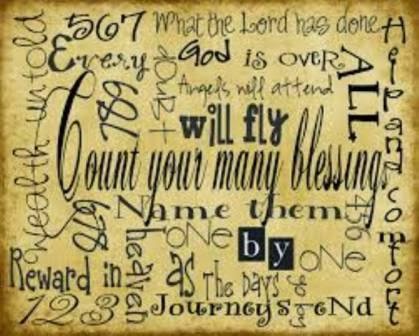 567
What the Lord has done
Every
God is over ALL
Wealth untold
789
doubt
Angels will attend
will fly
Help and comfort
Count your many blessings
Name them
678
456
one by one
heaven
Reward in
as The Days
123
Journey's eNd